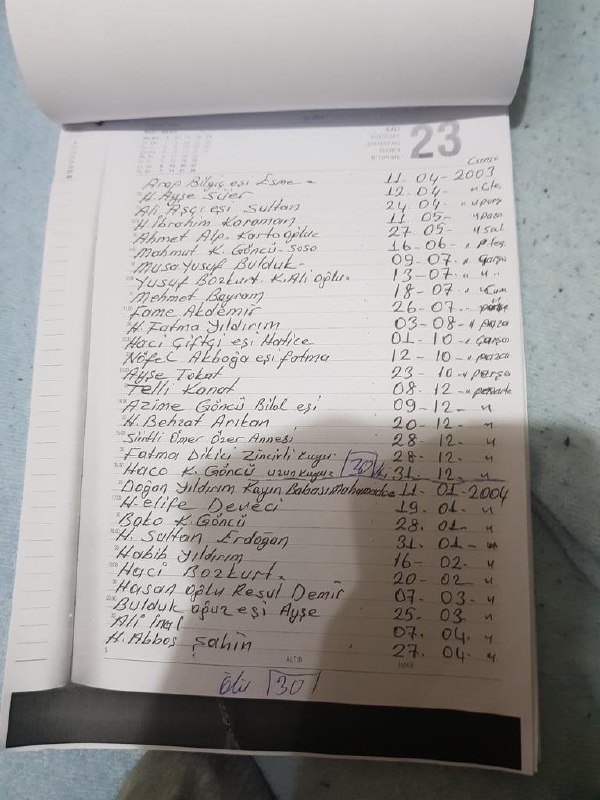 SALI
23
Cuma
Arap Bilgiç eşi Esme - 11. 04 - 2003
H. Ayşe Süer 12. 04 - "
Ali Aşçı eşi Sultan 24 04 - "
H. İbrahim Karaman 11 05 - "
Ahmet Alp. Kartaoğlu 27 05 - "
Mahmut K. Göncü - Soso 16 - 06 - "
Musa Yusuf Bulduk - 09 - 07 - "
Yusuf Bozkurt. K. Ali oğlu - 13 - 07 - " "
Mehmet Bayram 18 - 07 - " Cum
Fame Akdemir 26 - 07
H. Fatma Yıldırım 03 - 08 - "
Haci Çiftçi eşi Hatice 01 - 10 - "
Nöfel Akboğa eşi fatma 12 - 10 - "
Ayşe Tokat 23 - 10 - "
Telli Kanat 08 - 12 - "
Azime Göncü Bilal eşi 09 - 12 - "
H. Behzat Arıkan 20 - 12 - "
Siirtli Ömer Özer Annesi 28 - 12 - "
Fatma Dikici Zincirli Kuyu - 28 - 12 - "
Haco K. Göncü uzun Kuyu - 30 31. 12 - "
Doğan Yıldırım Kayın Babası 11 - 01 - 2004
H. elife Deveci 19. 01 - "
Bako K. Göncü 28. 01 - "
H. Sultan Erdoğan 31. 01 - "
Habib Yıldırım 16 - 02 - "
Haci Bozkurt - 20 - 02 - "
Hasan oğlu Resul Demir 07 - 03 - "
Bulduk oğuz eşi Ayşe 25 - 03 "
Ali inal 07. 04. "
H. Abbas Şahin 27. 04 - "
ALTIN
Ölü 30